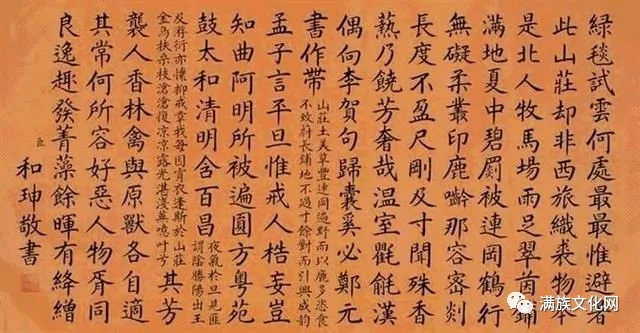 綠毯試雲何處最最惟避暑
此山莊却非西旅織裘物本
是北人牧馬場雨足翠茵鋪
滿地夏中碧罽被連岡鶴行
無礙柔叢印鹿齡那容密剡
長度不盈尺剛及寸聞殊香
爇乃饒芳奢哉溫室氍毹漢
偶句李賀句歸囊奚必鄭元
書作帶
山莊土美草豐遠同遍野而以鹿多恣食
不致蔚長鋪地不過寸餘對而引興成韵
孟子言平旦惟戒人梏妄豈
知曲阿明所被遍圓方粵苑
鼓太和清明含百昌
夜氣於旦見匪
謂陰勝陽出王
及游衍亦懷抑戒章我每因宵衣蓬斯於山莊
金烏扶桑枝滄滄復凉凉露光湛淺真噫吁兮
其芳
襲人香林禽與原獸各自適
其常何所容好惡人物胥同
良逸趣發菁藻餘暉有絳繒
臣和珅敬書
满族文化网